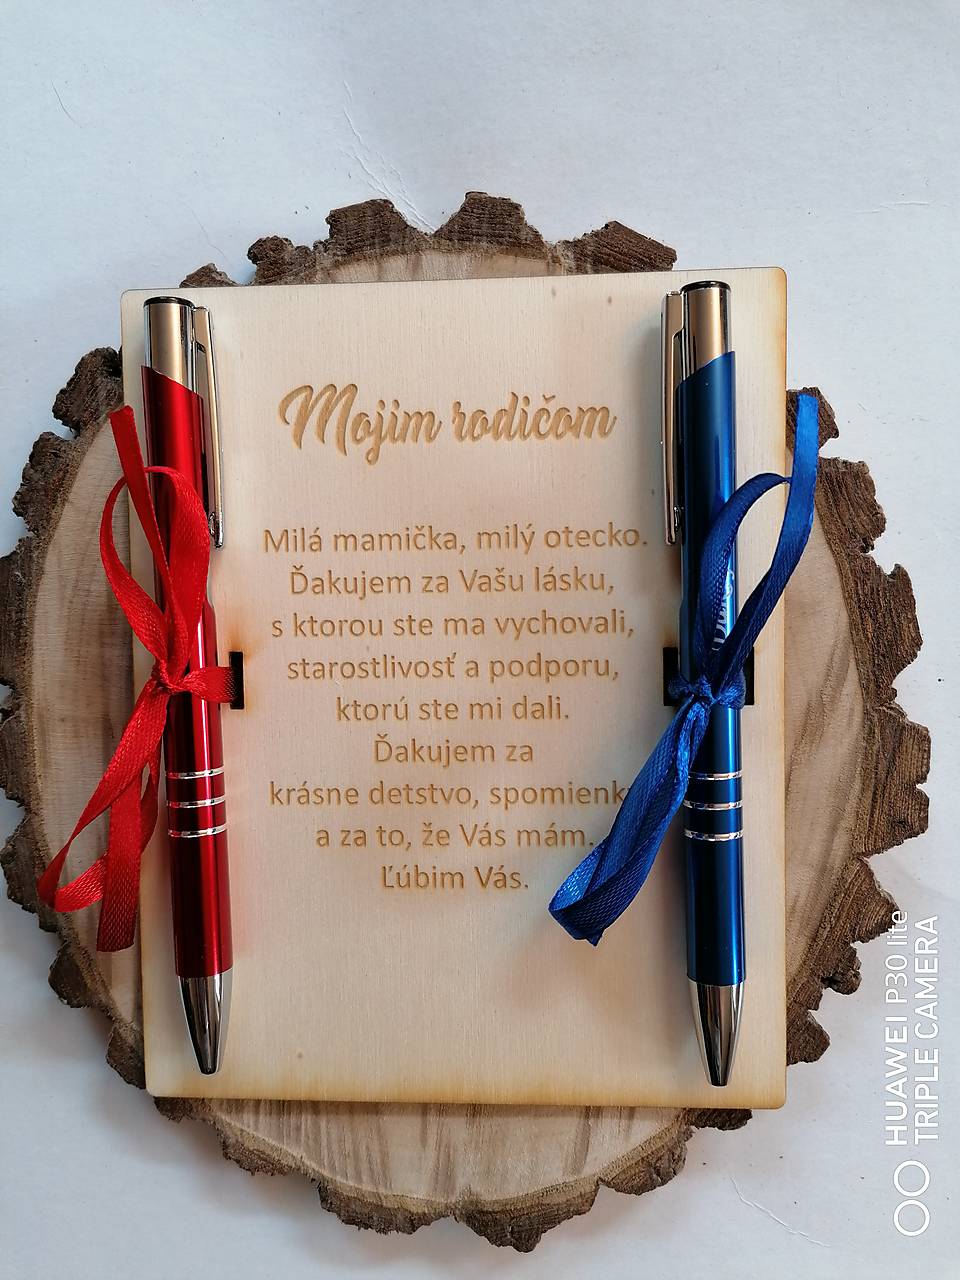 Mojim rodičom
Milá mamička, milý otecko.
Ďakujem za Vašu lásku,
s ktorou ste ma vychovali,
starostlivosť a podporu,
ktorú ste mi dali.
Ďakujem za
krásne detstvo, spomienk
a za to, že Vás mám.
Ľúbim Vás.
HUAWEI P30 lite
TRIPLE CAMERA